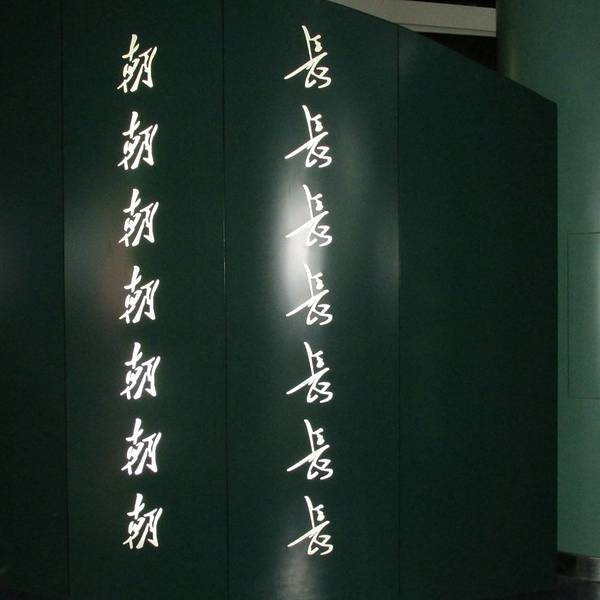 長長長長長長長
朝朝朝朝朝朝朝